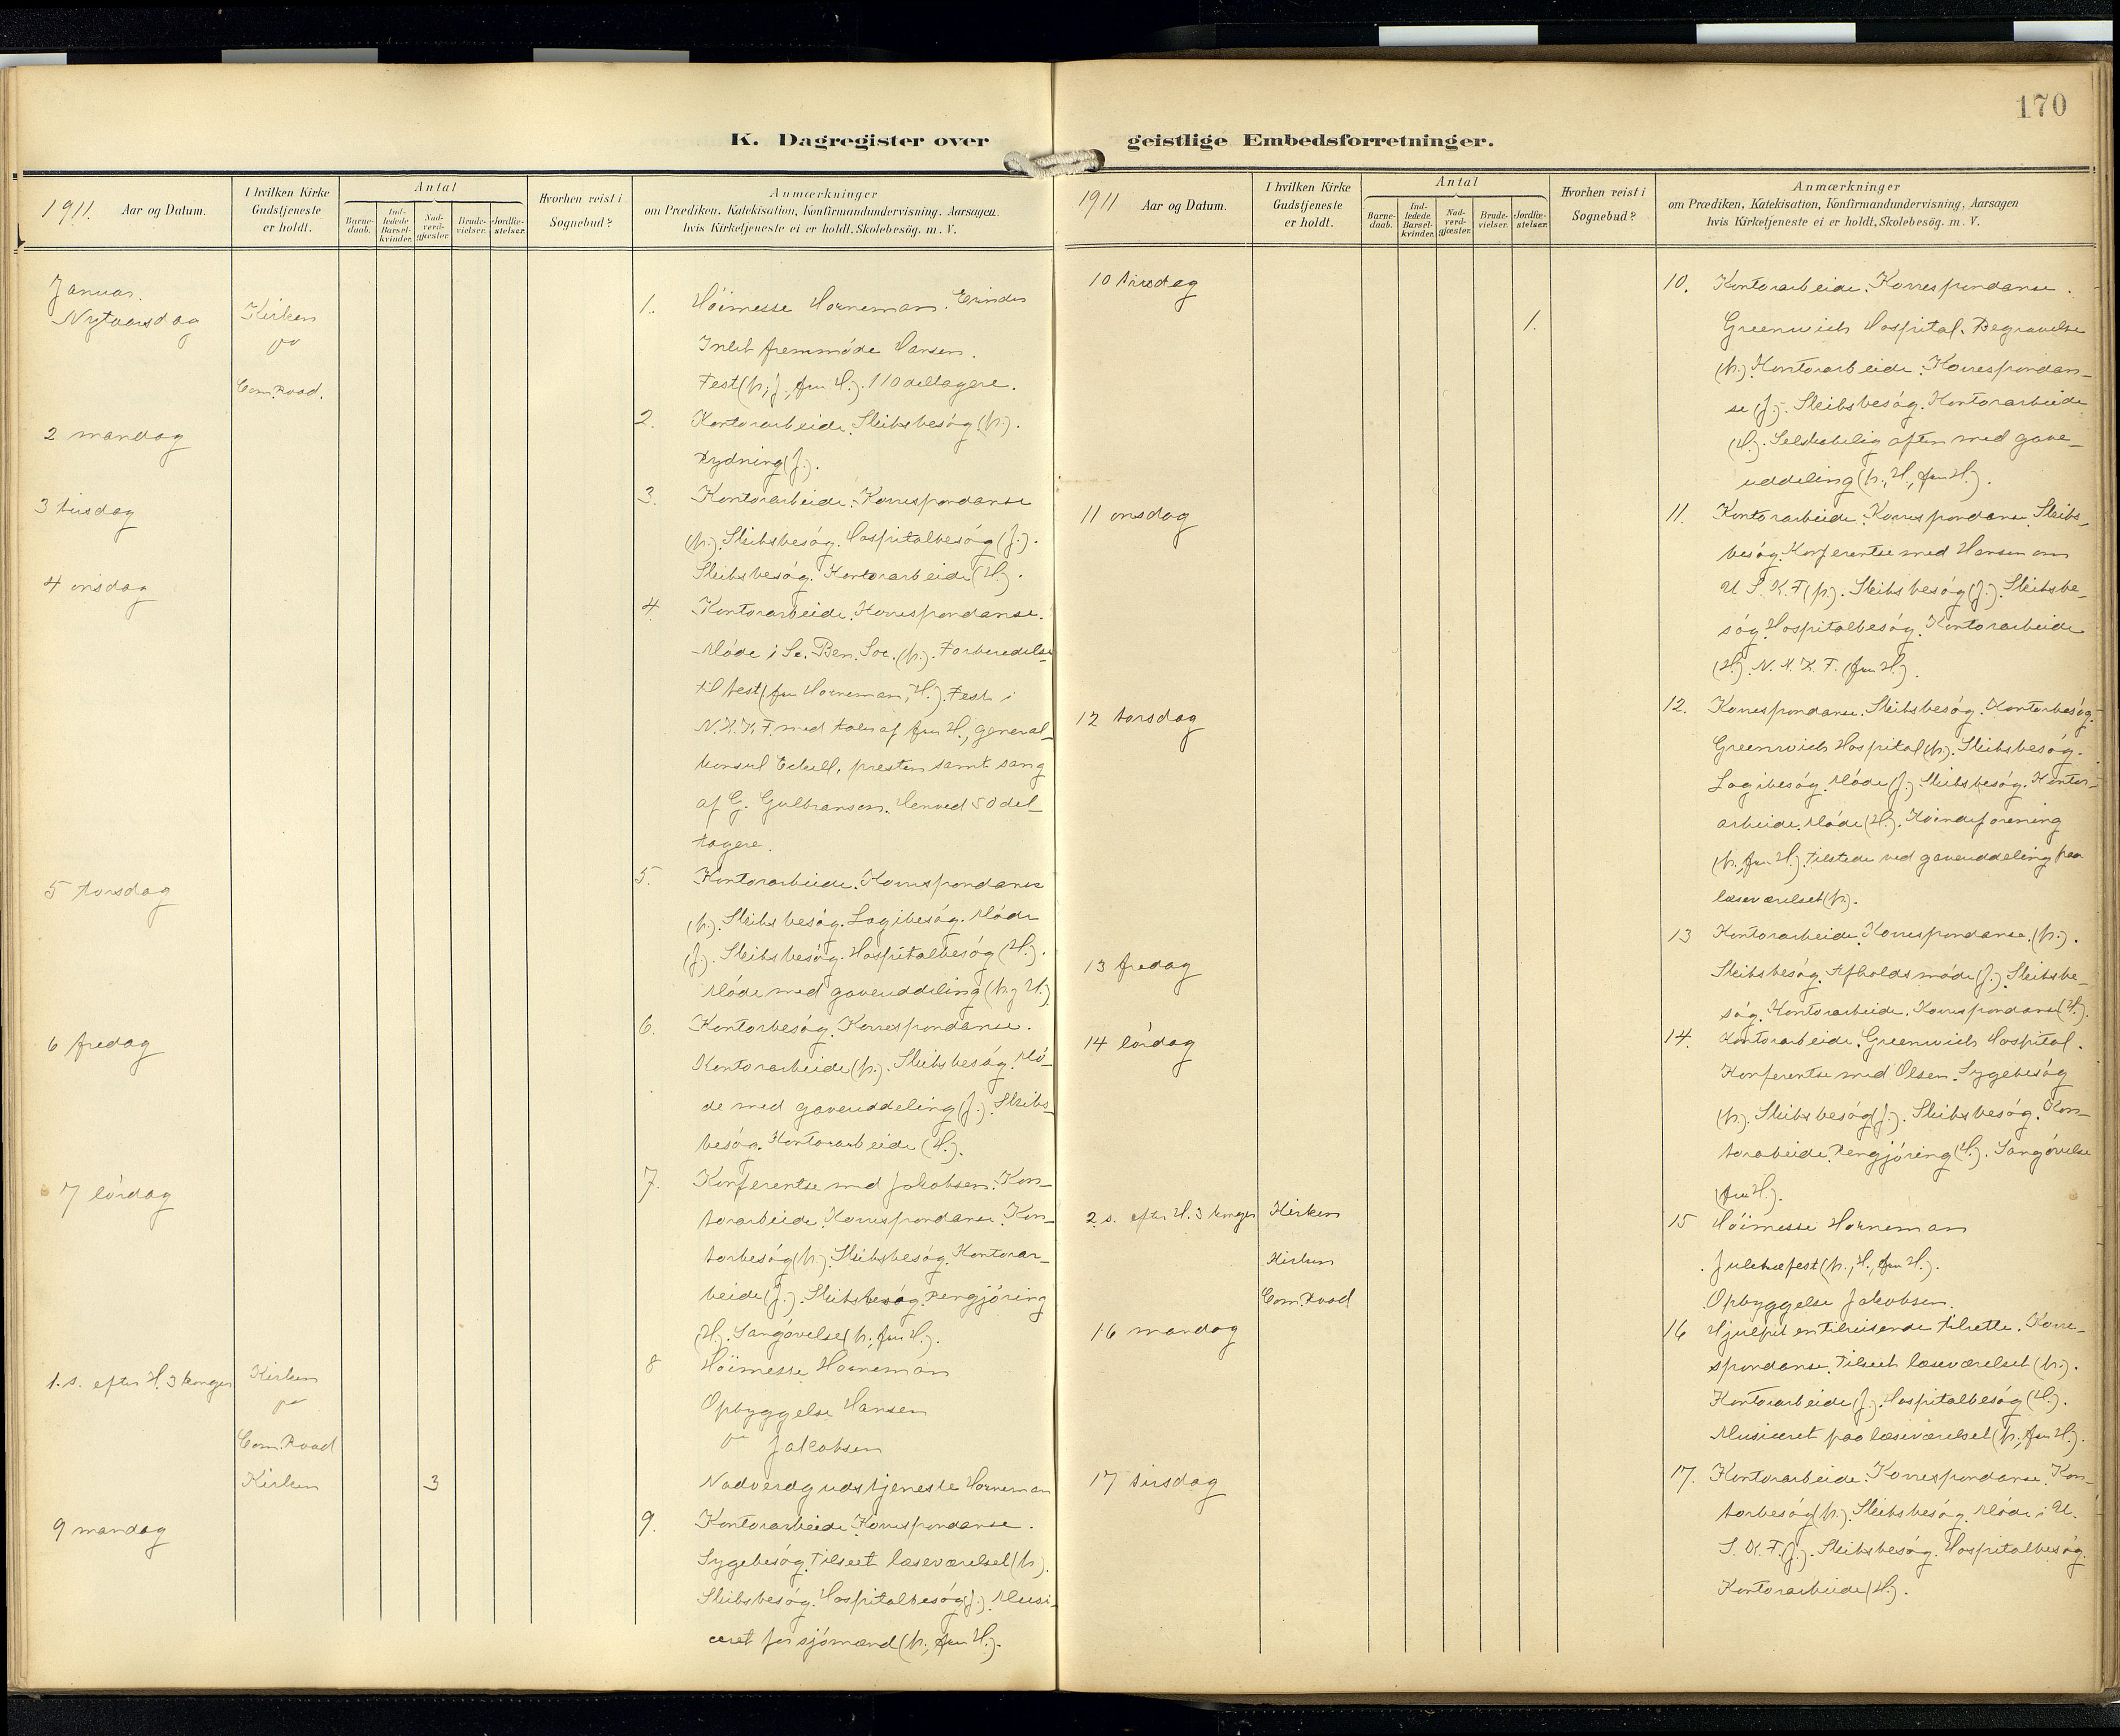 170
K. Dagregister over geistlige Embedsforretninger.
1911. Aar og Datum.
I hvilken Kirke Gudstjeneste er holdt.
Antal
Barne-daab.
Ind-ledede Barsel-kvinder.
Nad-verd-gjæster.
Brude-vielser.
Jordfæ-stelser.
Hvorhen reist i Sognebud?
Anmærkninger
om Prædiken, Katekisation, Konfirmandundervisning, Aarsagen
hvis Kirketjeneste ei er holdt, Skolebesög. m. V.
Januar.
Nytaarsdag
Kirken
Com. Road.
1. Höimesse Horneman.
Intet fremmöde Hansen.
Fest (p., J., fru H.). 110 deltagere.
2 mandag
2. Kontorarbeide. Skibsbesög (p.).
Rydning (J.).
3 tirsdag
3. Kontorarbeide. Korrespondanse
(p.). Skibsbesög. Hospitalbesög (J.).
Skibsbesög. Kontorarbeide (H.).
4 onsdag
4. Kontorarbeide. Korrespondanse.
Möde i Sc. Ben. Soc. (p.). Forberedelse
til fest (fru Horneman, H.). Fest i
N. K. K. F. med taler af fru H., general-
konsul Eckell, presten samt sang
af G. Gulbranson. Henved 50 del-
tagere.
5 torsdag
5. Kontorarbeide. Korrespondanse
(p.). Skibsbesög. Logibesög. Möde
(J.). Skibsbesög. Hospitalbesög (H.).
Möde med gaveuddeling (p., H.)
6 fredag
6. Kontorbesög. Korrespondanse.
Kontorarbeide (p.). Skibsbesög. Mö-
de med gaveuddeling (J.). Skibs-
besög. Kontorarbeide (H.).
7 lördag
7. Konferentse med Jakobsen. Kon-
torarbeide. Korrespondanse. Kon-
torbesög (p.). Skibsbesög. Kontorar-
beide (J.). Skibsbesög. Rengjöring
(H.). Sangövelse (p., fru H.).
1. s. efter H. 3 konger
Kirken
Com. Road
Kirken
3
8 Höimesse Horneman
Opbyggelse Hansen
Jakobsen
Nadverdgudstjeneste Horneman
9 mandag
9. Kontorarbeide. Korrespondanse.
Sygebesög. Tilseet læseværelset (p.).
Skibsbesög. Hospitalbesög (J.). Musi-
ceret for sjömænd (p., fru H.).
1911 Aar og Datum.
I hvilken Kirke Gudstjeneste er holdt.
Antal
Barne-daab.
Ind-ledede Barsel-kvinder.
Nad-verd-gjæster.
Brude-vielser.
Jordfæ-stelser.
Hvorhen reist i Sognebud?
Anmærkninger
om Prædiken, Katekisation, Konfirmandundervisning, Aarsagen
hvis Kirketjeneste ei er holdt, Skolebesög. m. V.
10 tirsdag
1.
10. Kontorarbeide. Korrespondanse.
Greenwich Hospital. Begravelse
(p.). Kontorarbeide. Korrespondan-
se (J.). Skibsbesög. Kontorarbeide
(H.). Selskabelig aften med gave-
uddeling (p., H., fru H.).
11 onsdag
11. Kontorarbeide. Korrespondanse. Skibs-
besög. Konferentse med Hansen om
U. S. K. F. (p.). Skibsbesög (J.). Skibsbe-
sög. Hospitalbesög. Kontorarbeide
(H.). N. K. K. F. (fru H.).
12 torsdag
12. Korrespondanse. Skibsbesög. Kontorbesög.
Greenwich Hospital (p.). Skibsbesög.
Logibesög. Möde (J.). Skibsbesög. Kontor-
arbeide. Möde (H.). Kvindeforening
(p., fru H.). Tilstede ved gaveuddeling paa
læseværelset (p.).
13 fredag
13 Kontorarbeide. Korrespondanse. (p.).
Skibsbesög. Afholdsmöde (J.). Skibsbe-
sög. Kontorarbeide. Korrespondanse (H.).
14 lördag
14. Kontorarbeide. Greenwich Hospital.
Konferentse med Olsen. Sygebesög
(p.). Skibsbesög (J.). Skibsbesög. Kon-
torarbeide. Rengjöring (H.). Sangövelse
(fru H.).
2. s. efter H. 3 konger
Kirken
Kirken
Com. Road
15 Höimesse Horneman
Juletræfest (p., H., fru H.).
Opbyggelse Jakobsen.
16 mandag
16 Hjulpet en tilreisende tilrette. Korre-
spondanse. Tilseet læseværelset (p.).
Kontorarbeide (J.). Hospitalbesög (H.).
Musiceret paa læseværelset (p., fru H.).
17 tirsdag
17. Kontorarbeide. Korrespondanse. Kon-
torbesög (p.). Skibsbesög. Möde i U.
S. K. F. (J.). Skibsbesög. Hospitalbesög.
Kontorarbeide (H.).